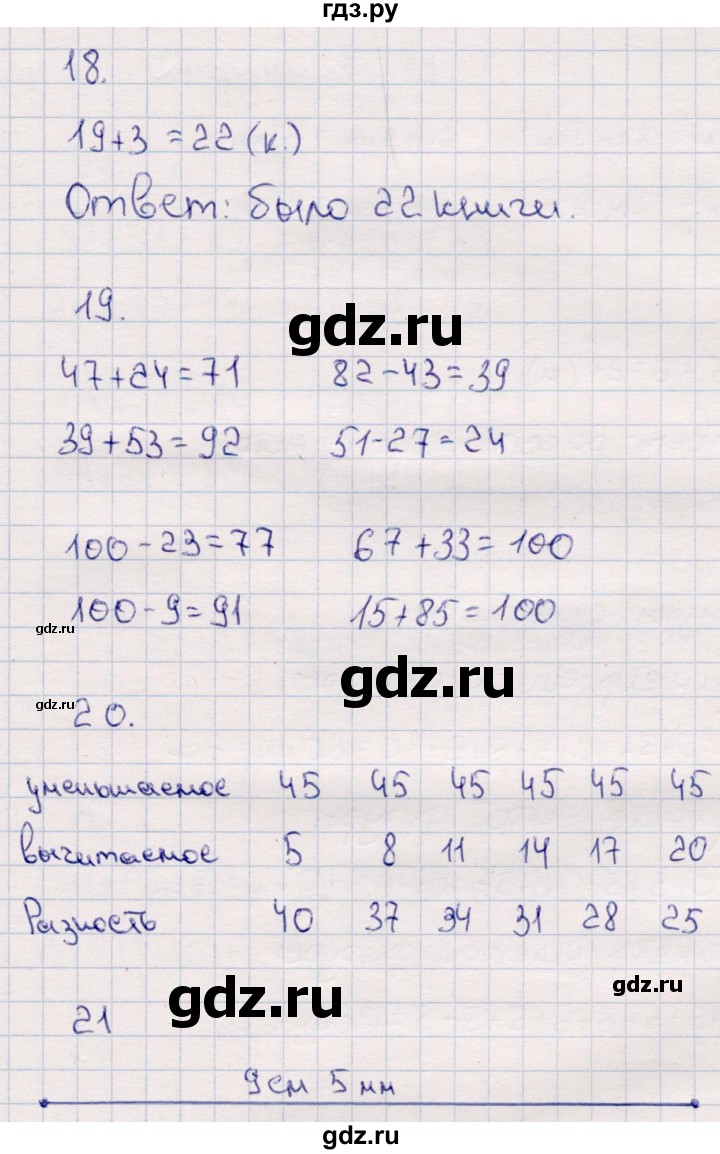 гдз.ру
18.
19+3 = 22 (к.)
Ответ: было 22 книги.
19.
gdz.ru
47+24=71 82-43=39
39+53=92 51-27=24
100-23=77 67+33=100
100-9=91 15+85=100
gdz.ru
gdz.ru
gdz.ru
20.
уменьшаемое 45 45 45 45 45 45
вычитаемое 5 8 11 14 17 20
Разность 40 37 34 31 28 25
gdz.ru
gdz.ru
21
9 см 5 мм
gdz.ru